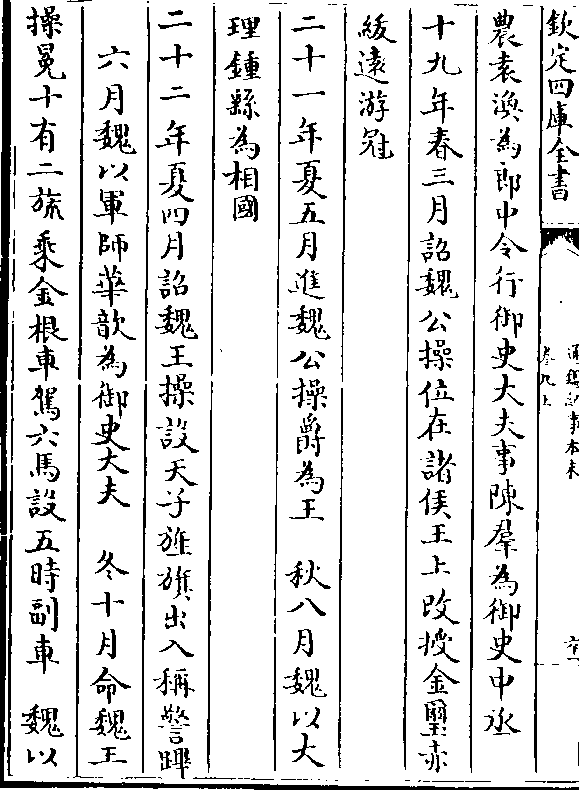 欽定四庫全書
通鑑紀事本末
卷九上
農袁渙為郎中令行御史大夫事陳羣為御史中丞
十九年春三月詔魏公操位在諸侯王上改授金璽赤
紱遠游冠
二十一年夏五月進魏公操爵為王 秋八月魏以大
理鍾繇為相國
二十二年夏四月詔魏王操設天子旌旗出入稱警蹕
六月魏以軍師華歆為御史大夫 冬十月命魏王
操冕十有二旒乘金根車駕六馬設五時副車 魏以